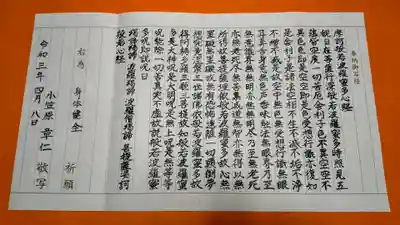 奉納御写経
摩訶般若波羅蜜多心経
観自在菩薩行深般若波羅蜜多時照見五
蘊皆空度一切苦厄舎利子色不異空空不
異色色即是空空即是色受想行識亦復如
是舎利子是諸法空相不生不滅不垢不浄
不増不減是故空中無色無受想行識無眼
耳鼻舌身意無色声香味触法無眼界乃至
無意識界無無明亦無無明尽乃至無老死
亦無老死尽無苦集滅道無智亦無得以無
所得故菩提薩埵依般若波羅蜜多故心無
罣礙無罣礙故無有恐怖遠離一切顛倒夢
想究竟涅槃三世諸佛依般若波羅蜜多故
得阿耨多羅三藐三菩提故知般若波羅蜜
多是大神呪是大明呪是無上呪是無等等
呪能除一切苦真実不虚故説般若波羅蜜
多呪即説呪曰
羯諦羯諦 波羅羯諦 波羅僧羯諦 菩提薩婆訶
般若心経
右為 身体健全 祈願
小笠原 章仁 敬写
令和三年四月八日